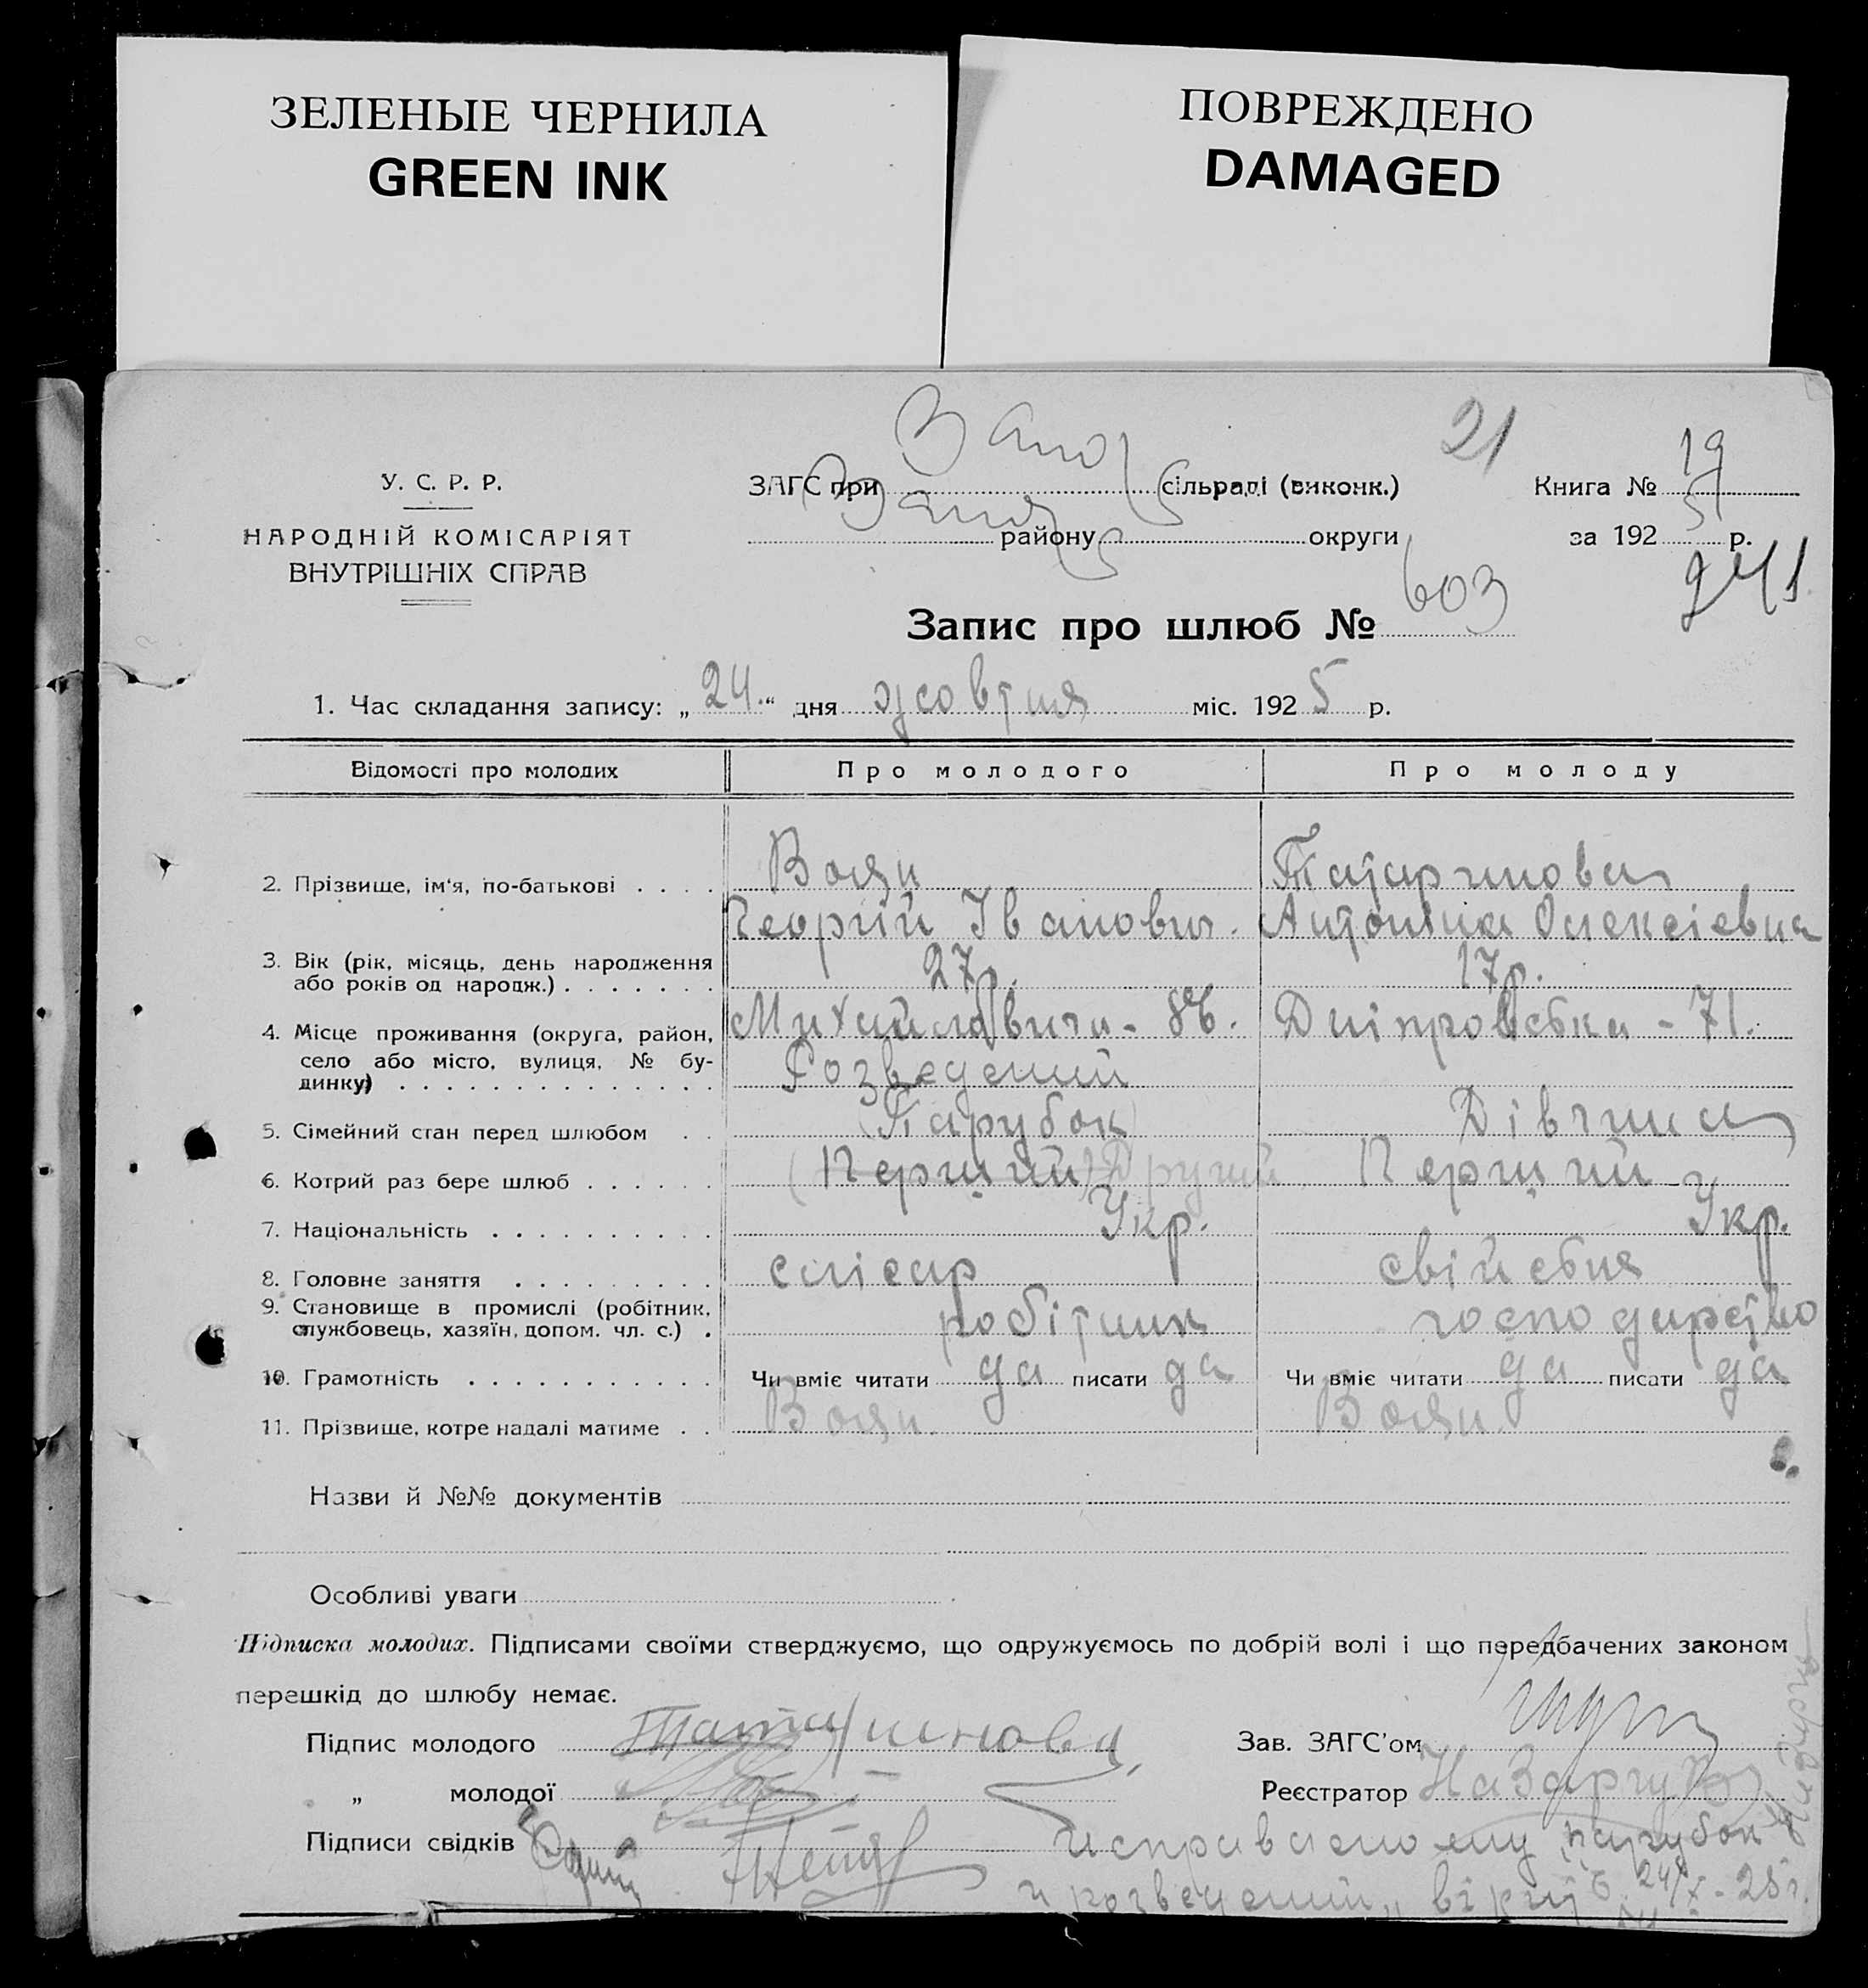 ЗЕЛЕНЫЕ ЧЕРНИЛА
GREEN INK
ПОВРЕЖДЕНО
DAMAGED
21
У. С. Р. Р.
НАРОДНІЙ КОМІСАРІЯТ
ВНУТРІШНІХ СПРАВ
ЗАГС при сільраді (виконк.)
району округи
Книга № 19
за 192 5 р.
241
Запис про шлюб № 603
1. Час складання запису: „24.“ дня жовтня міс. 1925 р.
Відомості про молодих Про молодого Про молоду
2. Прізвище, ім'я, по-батькові . . . . Татаринова
Георгій Іванович. Антоніна Олексієвна
3. Вік (рік, місяць, день народження
або років од народж.) . . . . . . . 27р. 17р.
4. Місце проживання (округа, район,
село або місто, вулиця, № бу-
динку) . . . . . . . . . . . . . .
Дніпровська - 71.
Розведений
5. Сімейний стан перед шлюбом . . (Парубок) Дівчина
6. Котрий раз бере шлюб . . . . . . (Перший) Другий Перший
7. Національність . . . . . . . . . . Укр. Укр.
8. Головне заняття . . . . . . . . . слісар свійське
9. Становище в промислі (робітник,
службовець, хазяїн, допом. чл. с.) . робітник господарство
10. Грамотність . . . . . . . . . . . Чи вміє читати да писати да Чи вміє читати да писати да
11. Прізвище, котре надалі матиме . .
Назви й №№ документів
Особливі уваги
Підписка молодих. Підписами своїми стверджуємо, що одружуємось по добрій волі і що передбачених законом
перешкід до шлюбу немає.
Підпис молодого Татаринова Зав. ЗАГС'ом
„ молодої Реєстратор
Підписи свідків
парубок
розведений